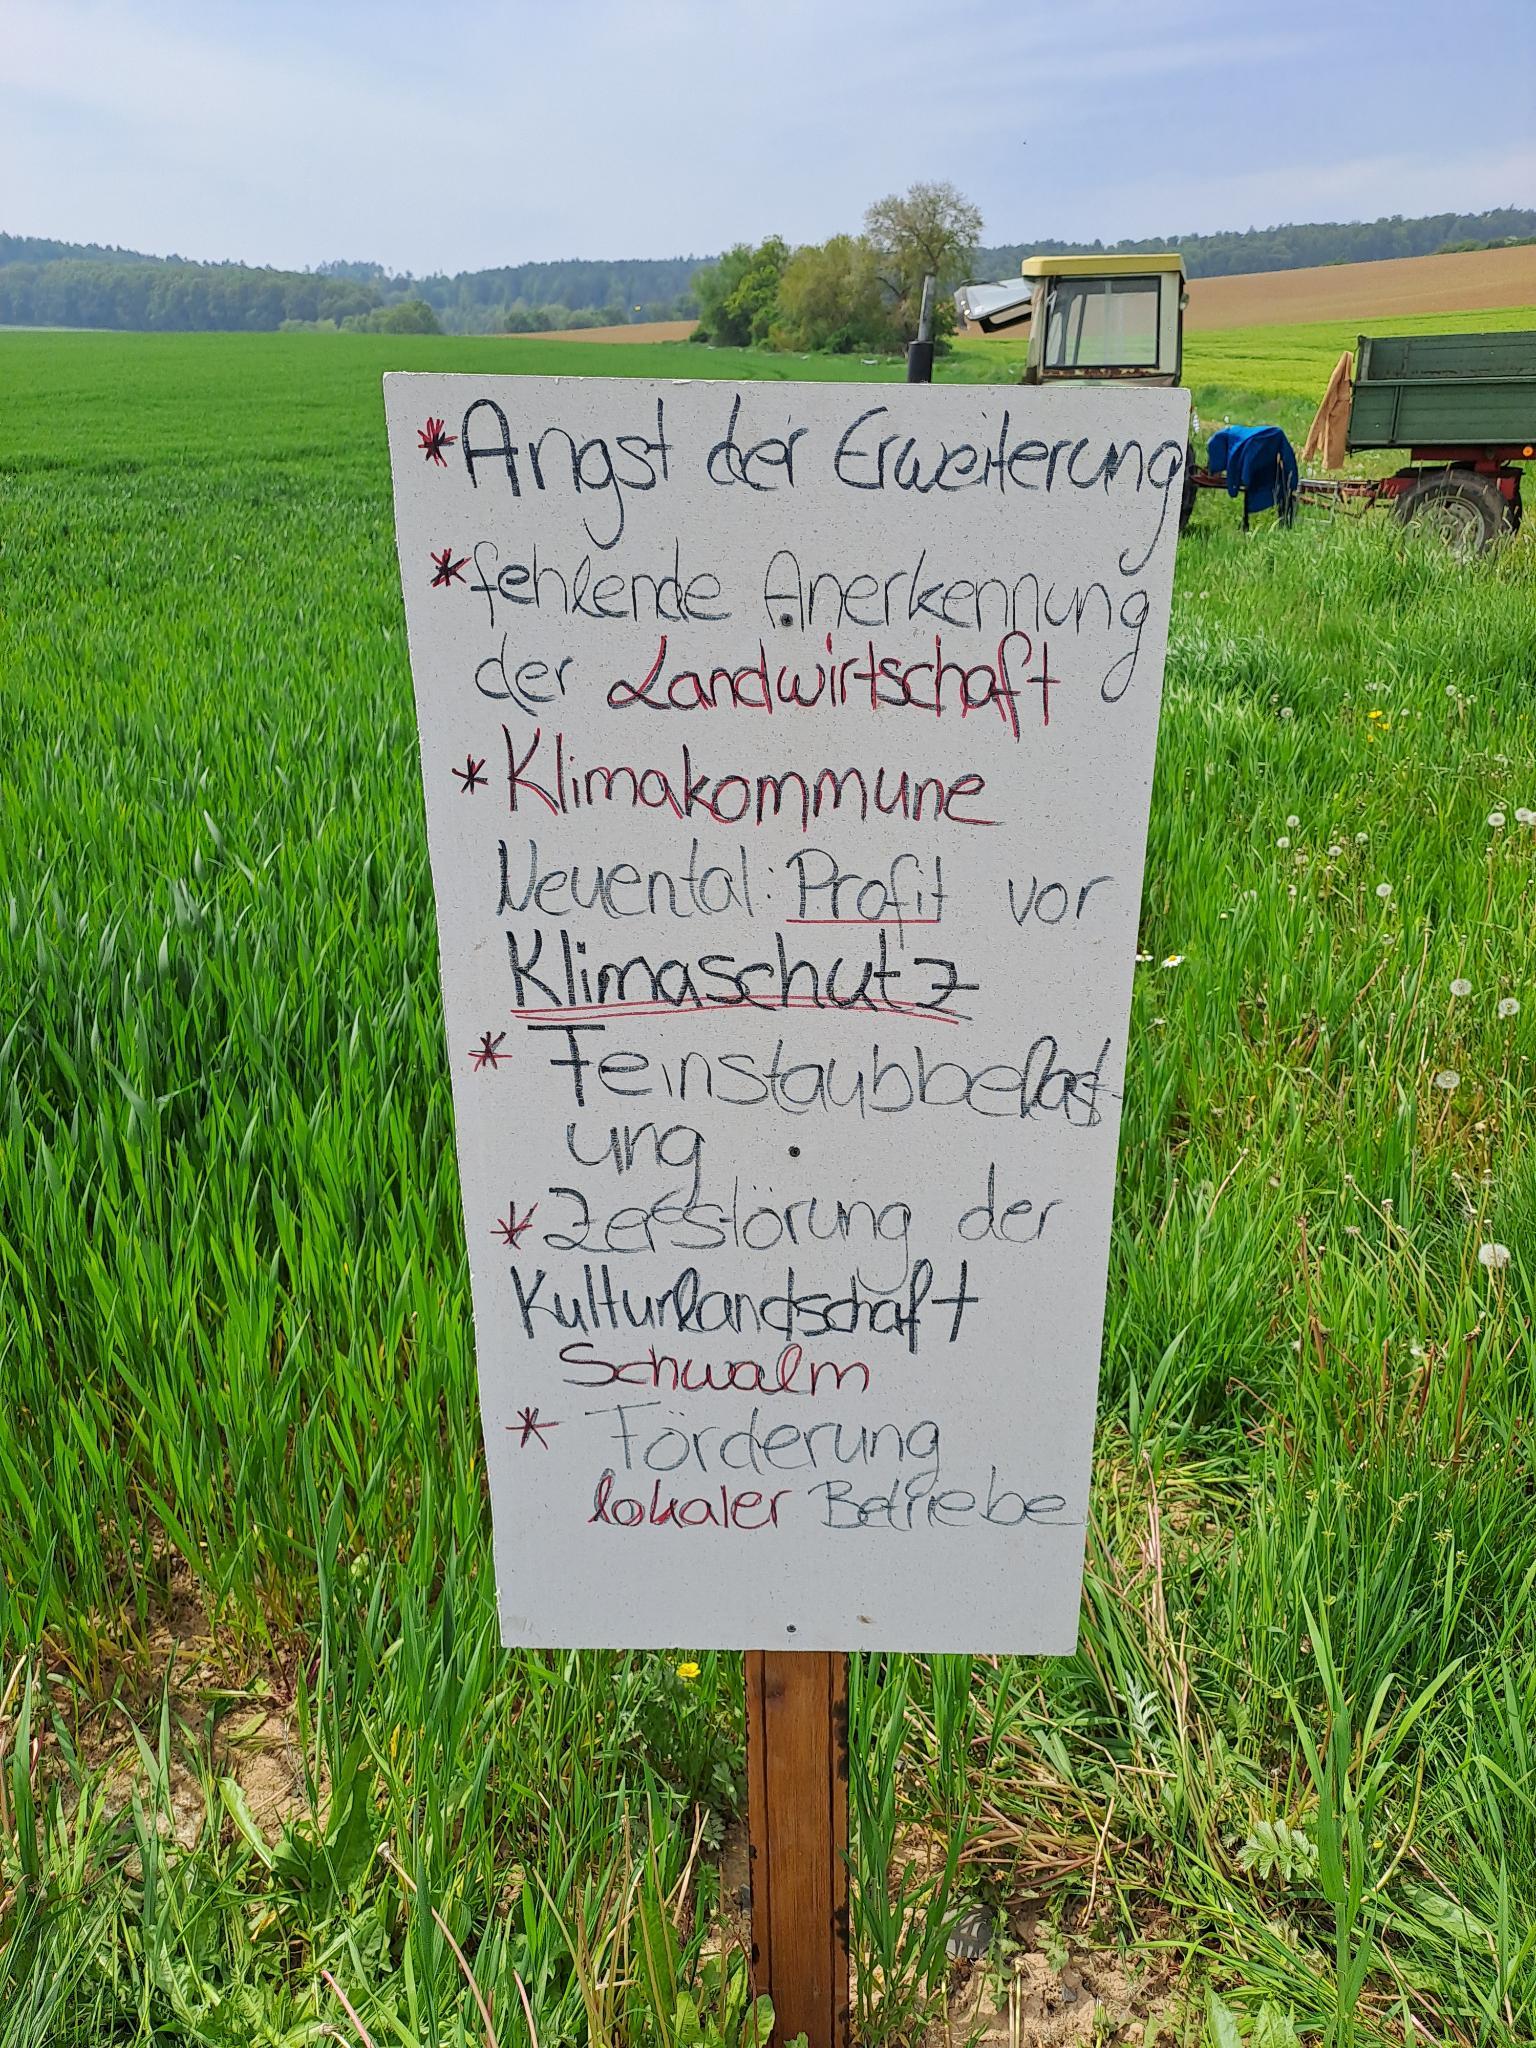 * Angst der Erweiterung
* fehlende Anerkennung
der Landwirtschaft
* Klimakommune
Neuental: Profit vor
Klimaschutz
* Feinstaubbelast-
ung
* Zerstörung der
Kulturlandschaft
Schwalm
* Förderung
lokaler Betriebe